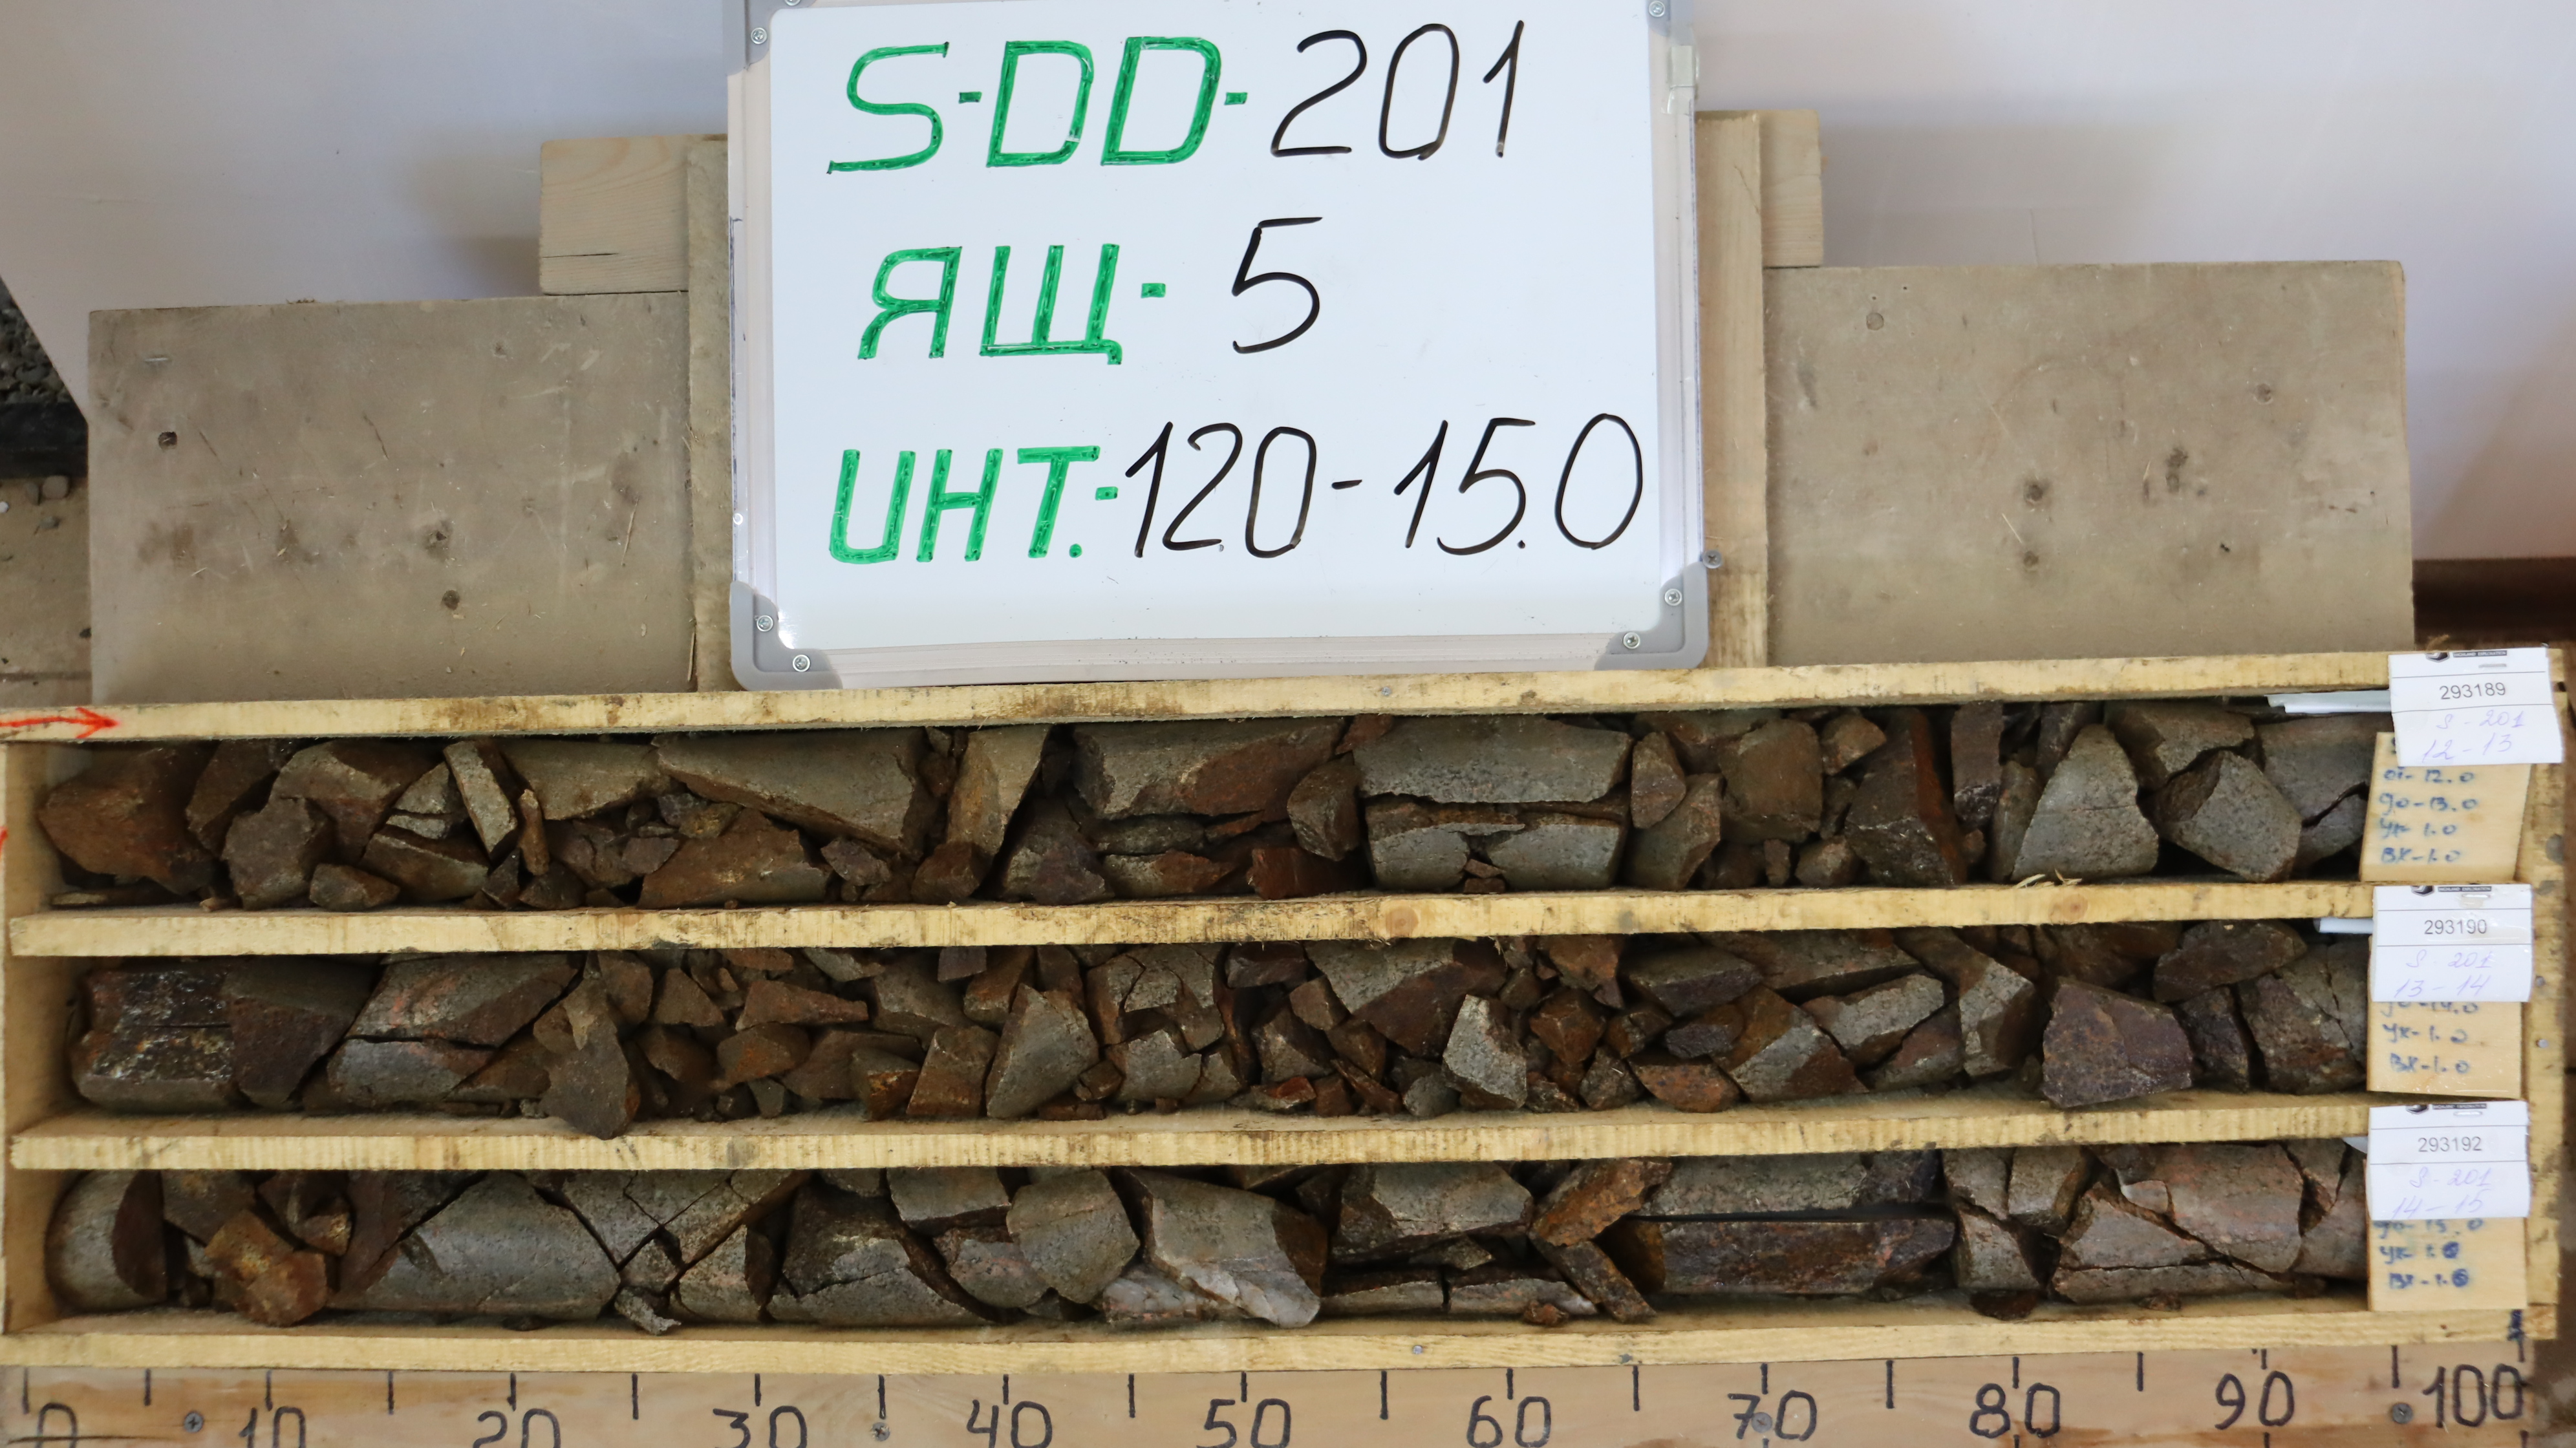 S-DD-201
ЯЩ- 5
ИНТ.-12.0-15.0
293189
S-201
12-13
от-12.0
до-13.0
ук-1.0
вк-1.0
293190
S-201
13-14
до-14.0
ук-1.0
вк-1.0
293192
S-201
14-15
до-15.0
ук-1.0
вк-1.0
0 10 20 30 40 50 60 70 80 90 100